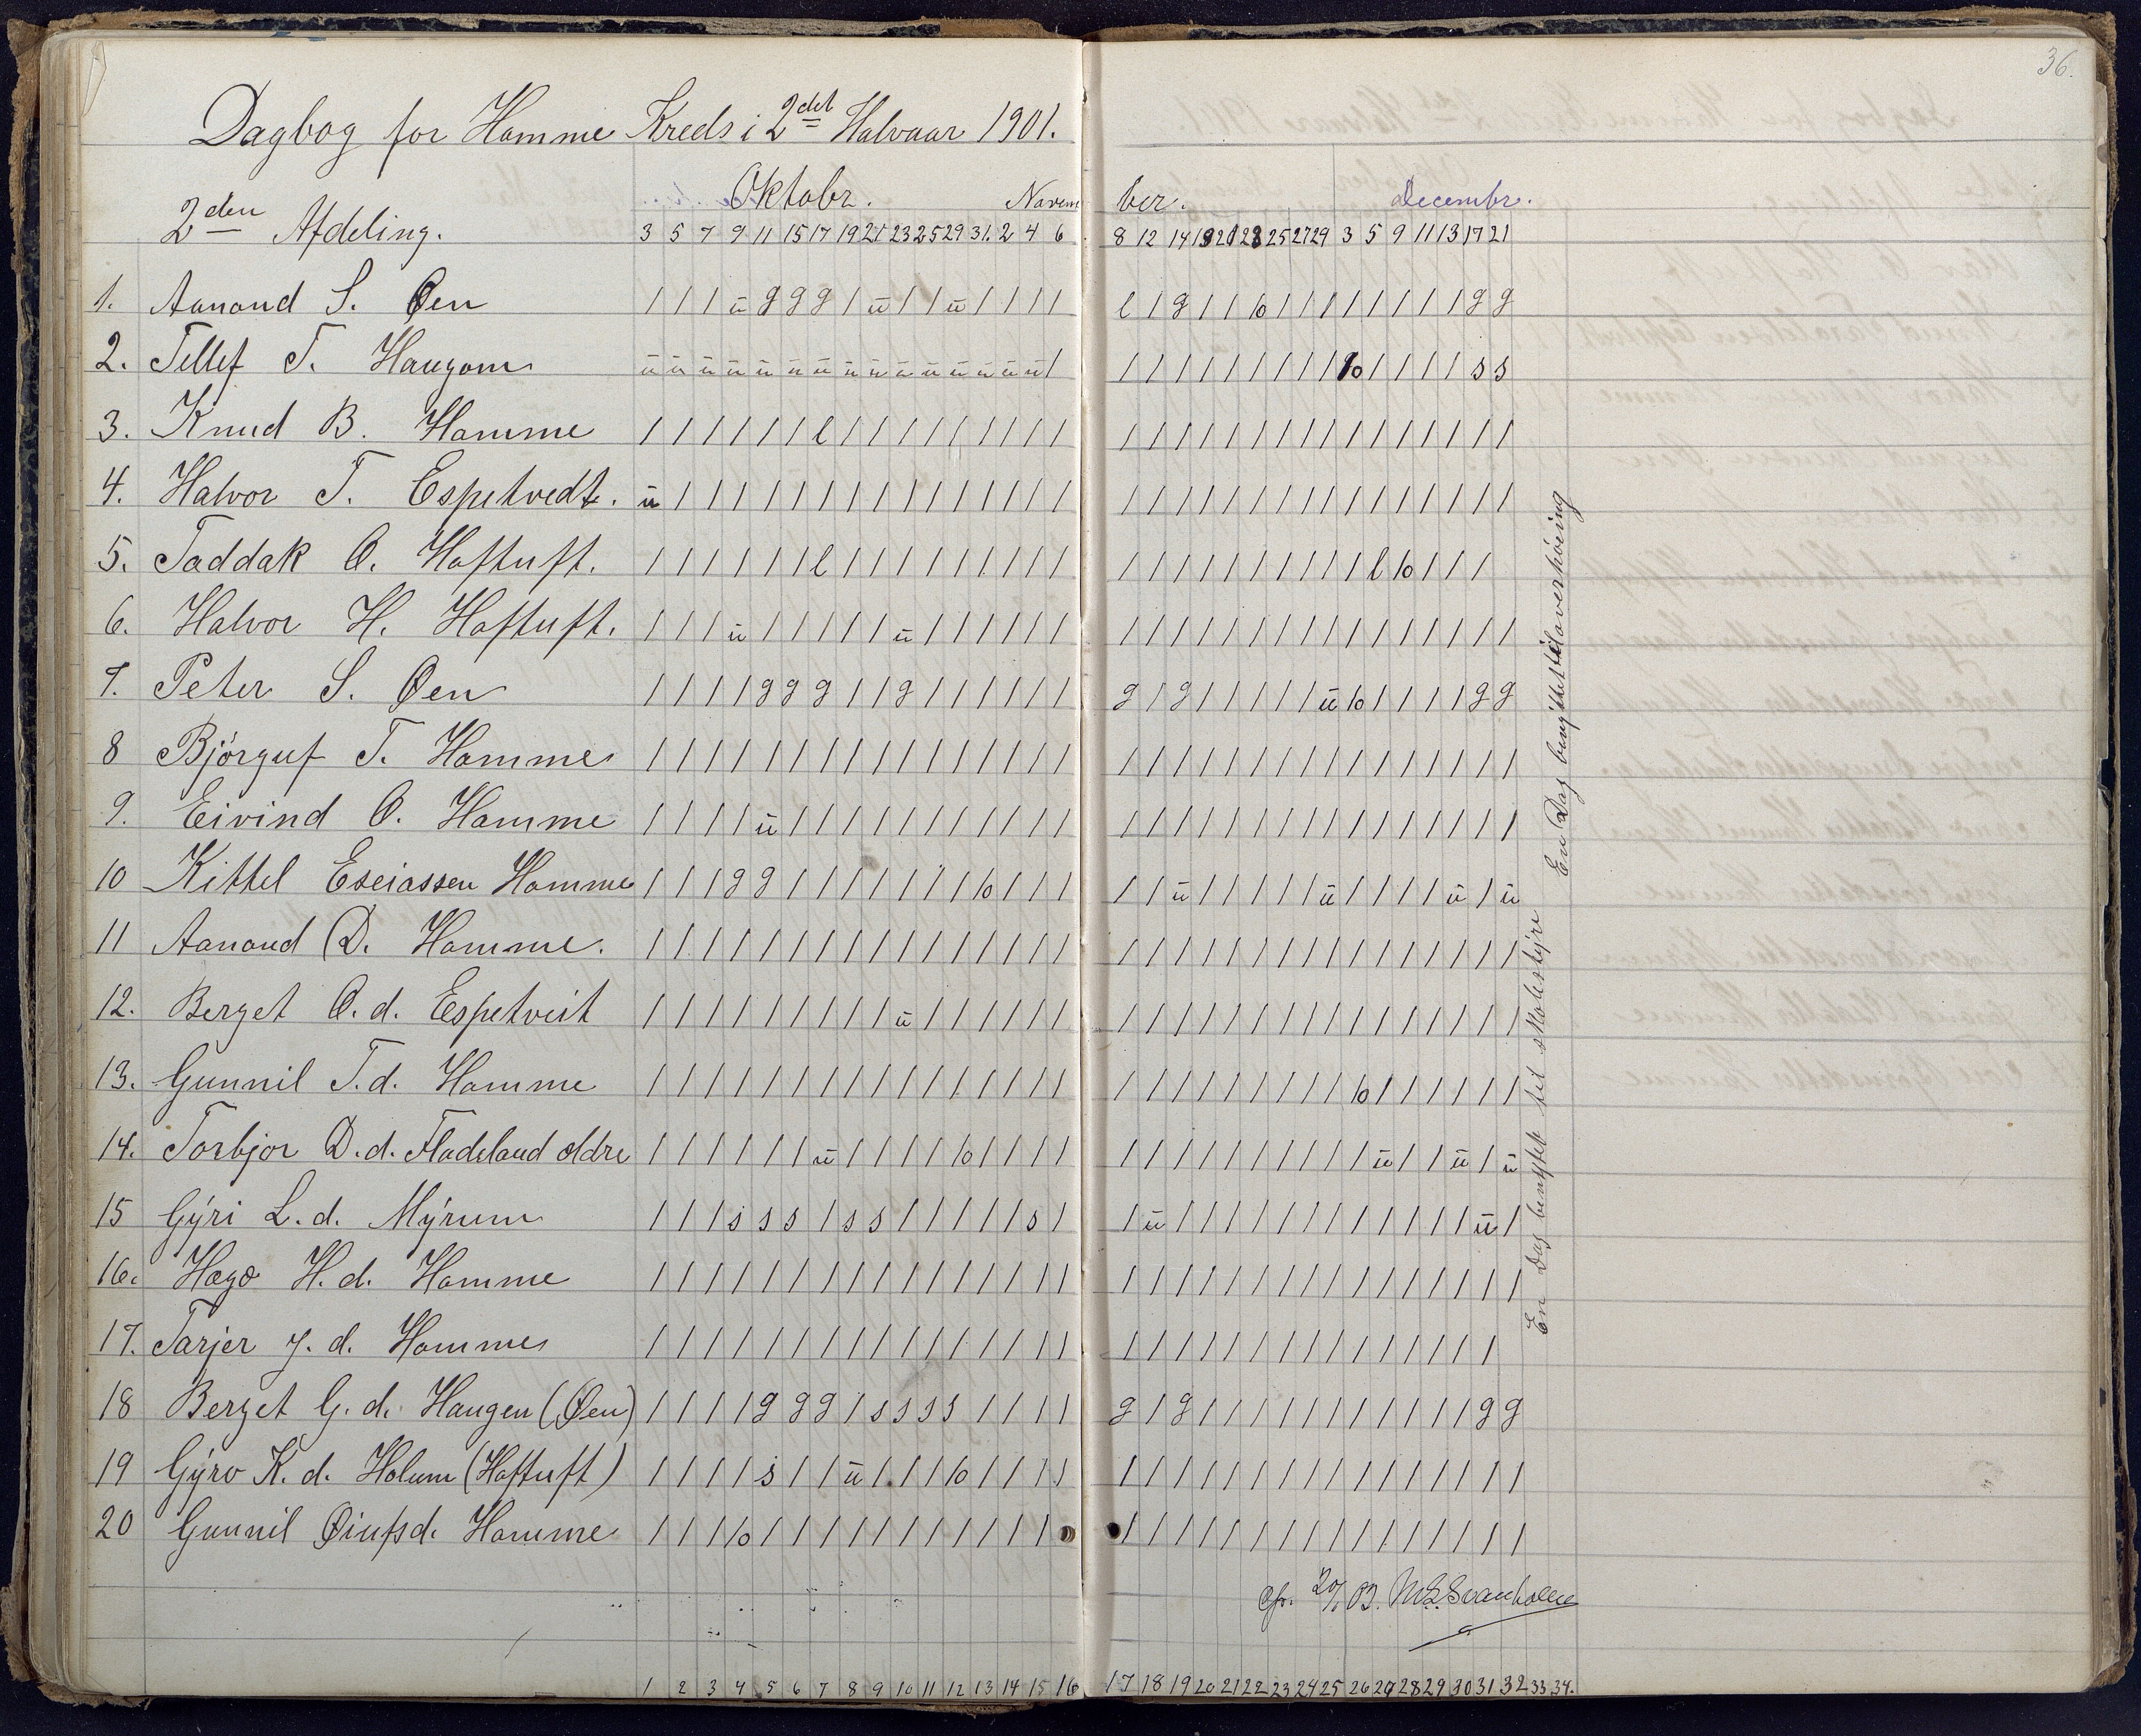 36.
Dagbog for Homme Kreds i 2det Halvaar 1901.
2den Afdeling.
Oktobr. Novem ber. Decembr.
3 5 7 9 11 15 17 19 21 23 25 29 31. 2 4 6 8 12 14 18 20 23 25 27 29 3 5 9 11 13 17 21
1. Aanond S. Øen / / / ü g g g / ü / / ü / / / / l / g / / /o / / / / / / / / g g
2. Tellef T. Haugom ü ü ü ü ü ü ü ü ü ü ü ü ü ü ü / / / / / / / / / / /o / / / / s s
3. Knud B. Homme / / / / / / l / / / / / / / / / / / / / / / / / / / / / / / / /
4. Halvor T. Espetvedt. ü / / / / / / / / / / / / / / / / / / / / / / / / / / / / / / /
5. Taddak O. Hoftuft. / / / / / / l / / / / / / / / / / / / / / / / / / / l /o / / /
6. Halvor H. Hoftuft. / / / ü / / / / / ü / / / / / / / / / / / / / / / / / / / / / /
7. Peter S. Øen / / / / g g g / / g / / / / / / g / g / / / / / ü /o / / / / g g
8 Bjørguf T. Homme / / / / / / / / / / / / / / / / / / / / / / / / / / / / / / / /
9. Eivind O. Homme / / / / ü / / / / / / / / / / / / / / / / / / / / / / / / / / /
10 Kittel Eseiassen Homme / / / g g / / / / / / / /o / / / / / ü / / / / / ü / / / / ü / ü
11 Aanond D. Homme. / / / / / / / / / / / / / / / / / / / / / / / / / / / / / / / /
12. Berget O.d. Espetveit / / / / / / / / / ü / / / / / / / / / / / / / / / / / / / / / /
13. Gunnil T.d. Homme / / / / / / / / / / / / / / / / / / / / / / / / / /o / / / / / /
14. Torbjor D.d. Fladeland ældre / / / / / / ü / / / / /o / / / / / / / / / / / / / / ü / / ü / ü
15 Gÿri L.d. Mÿrum / / / s s s / s s / / / / / s / / ü / / / / / / / / / / / / ü /
16. Hægo H.d. Homme / / / / / / / / / / / / / / / / / / / / / / / / / / / / / / / /
17. Tarjer J.d. Homme / / / / / / / / / / / / / / / / / / / / / / / / / / / / / / /
18 Berget G.d. Haugen (Øen) / / / / g g g / s s s s / / / / g / g / / / / / / / / / / / g g
19 Gÿro K.d. Holum (Hoftuft) / / / / s / / ü / / / /o / / / / / / / / / / / / / / / / / / / /
20 Gunnil Øiufsd. Homme / / / /o / / / / / / / / / / / / / / / / / / / / / / / / / / /
En Dag benyttet til overhøring
En Dag benyttet til skolestyre
1 2 3 4 5 6 7 8 9 10 11 12 13 14 15 16 17 18 19 20 21 22 23 24 25 26 27 28 29 30 31 32 33 34.